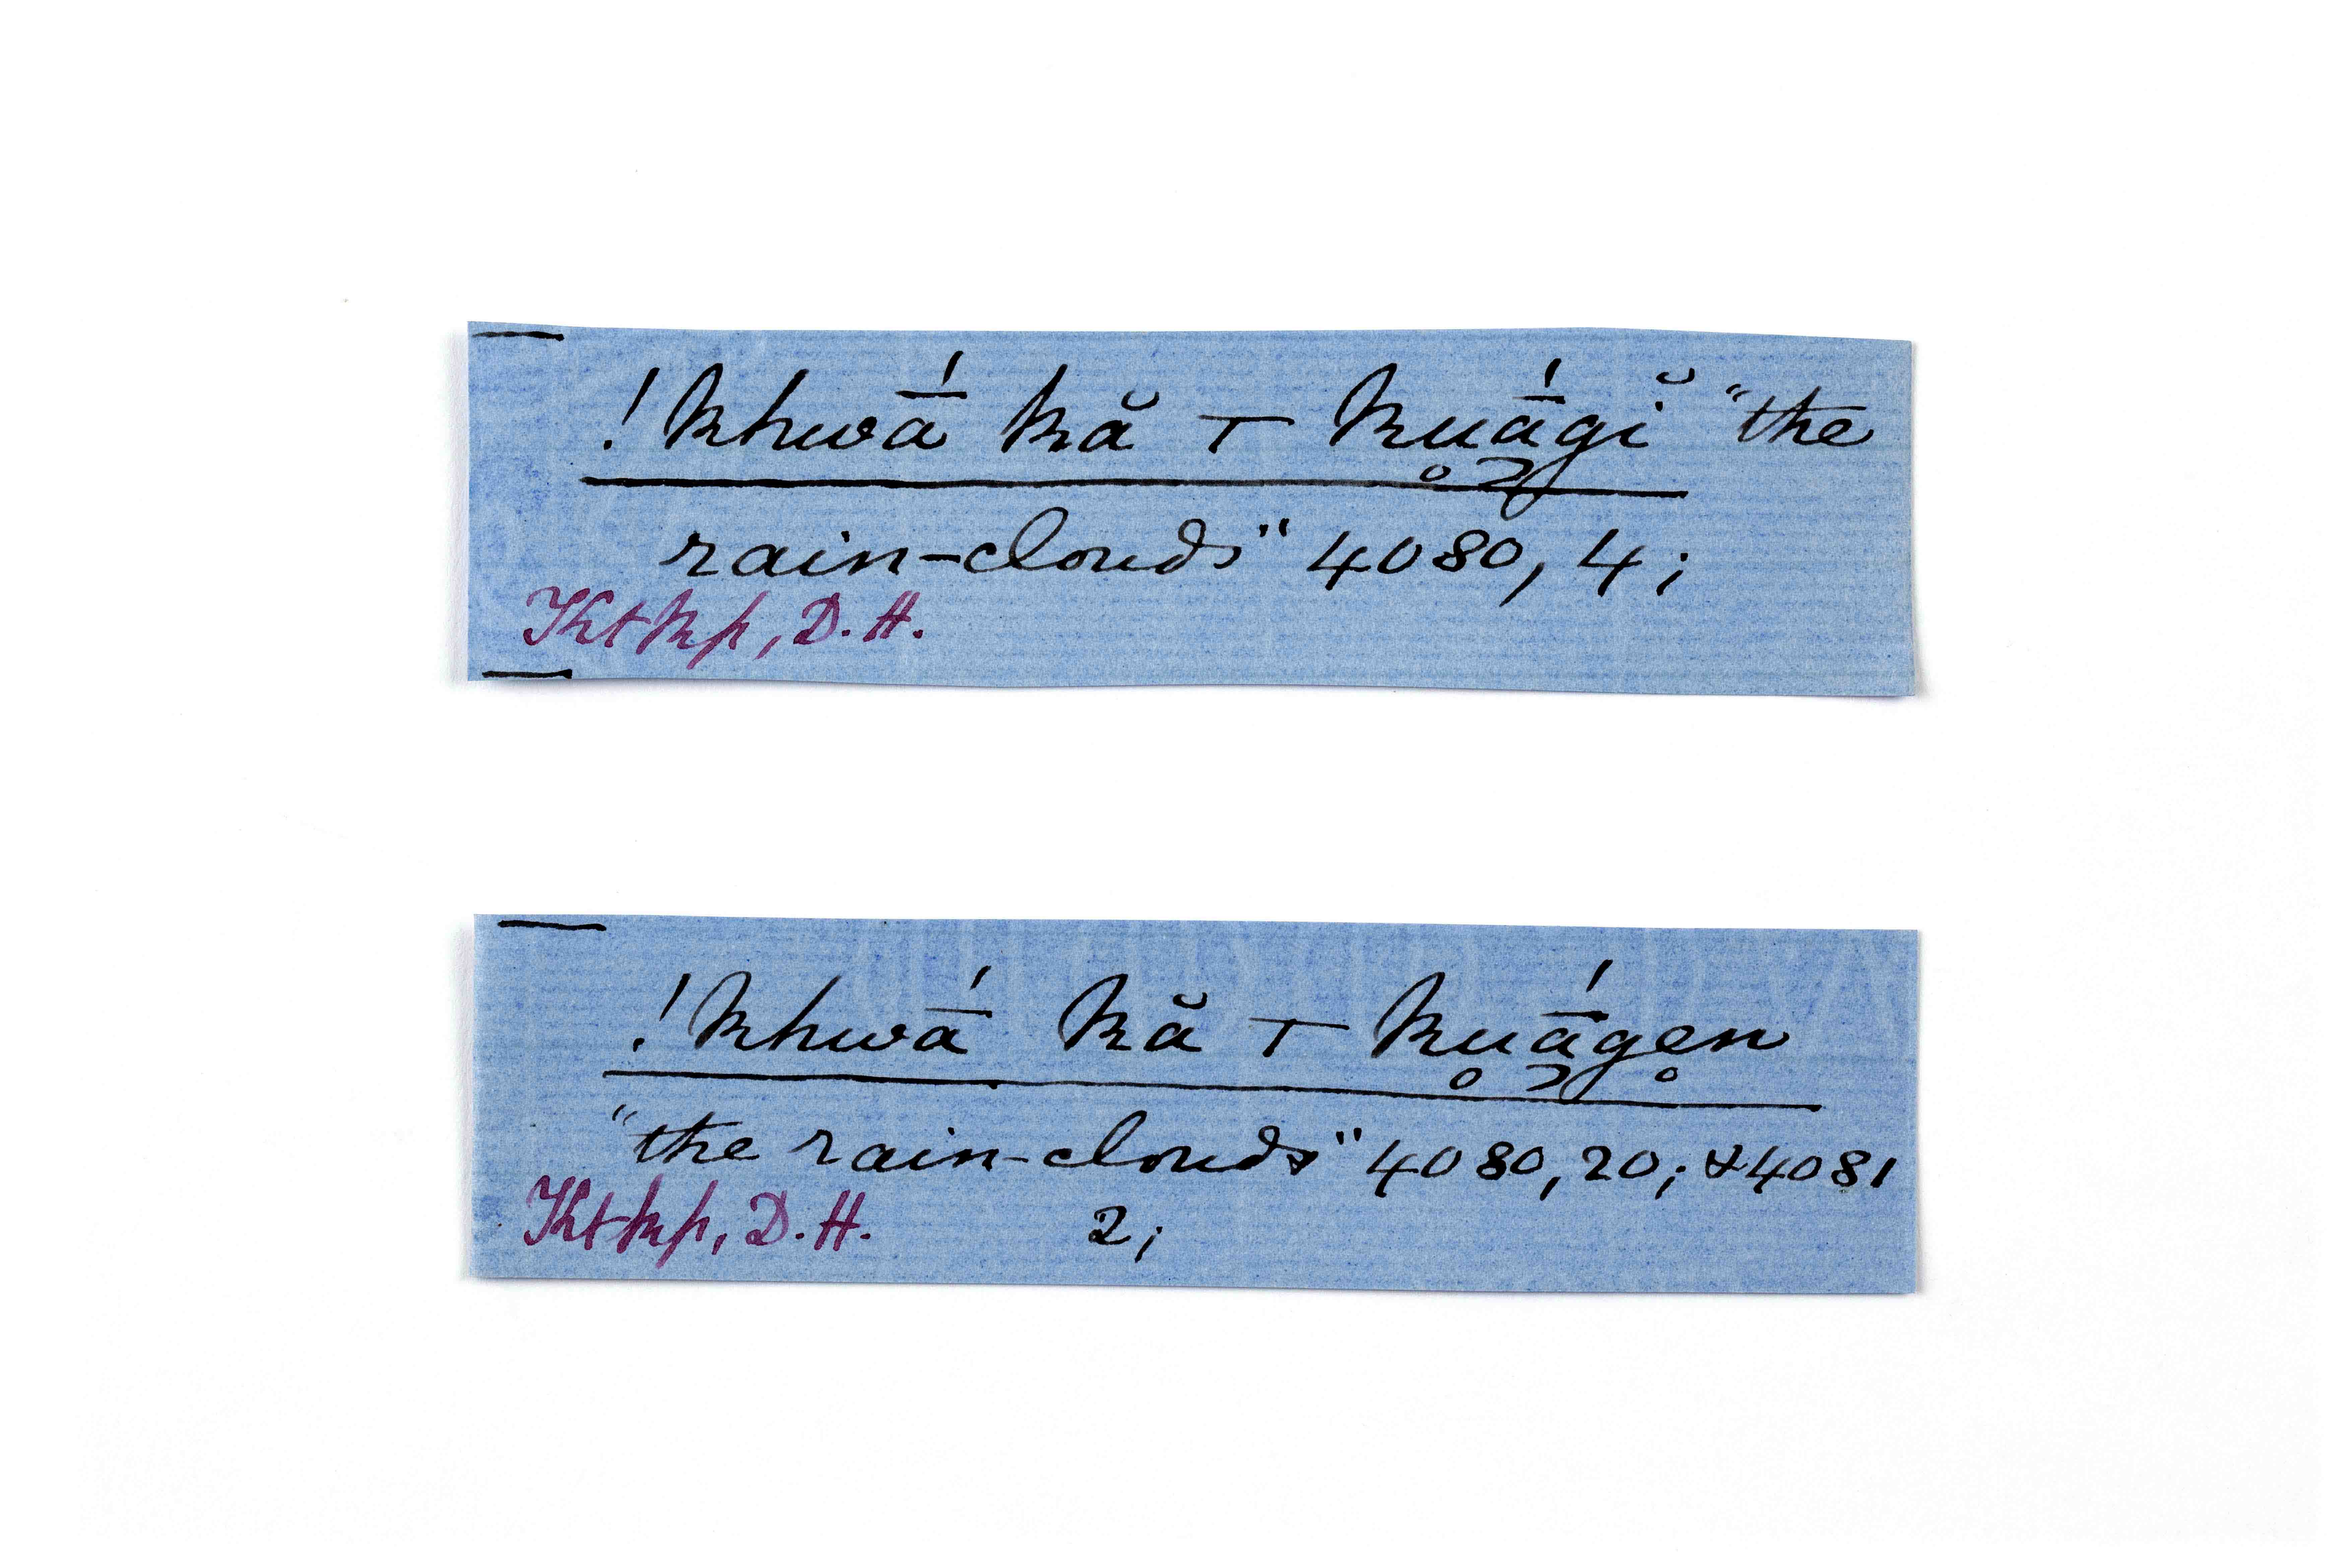 !khwā́ kă ⊤ ku̥ā̯́gĭ "the
rain-clouds" 4080, 4;
Ktkp, D.H.
!khwā́ kă ⊤ ku̥ā̯́ge̥n
"the rain-clouds" 4080, 20; & 4081
2;
Ktkp, D.H.